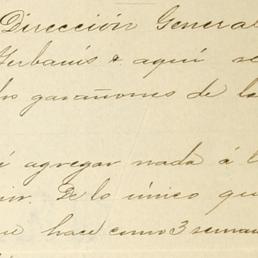 Dirección General
Herbanis & aquí se
los garañones de la
agregar nada á l
De lo único qu
hace como 3 seman